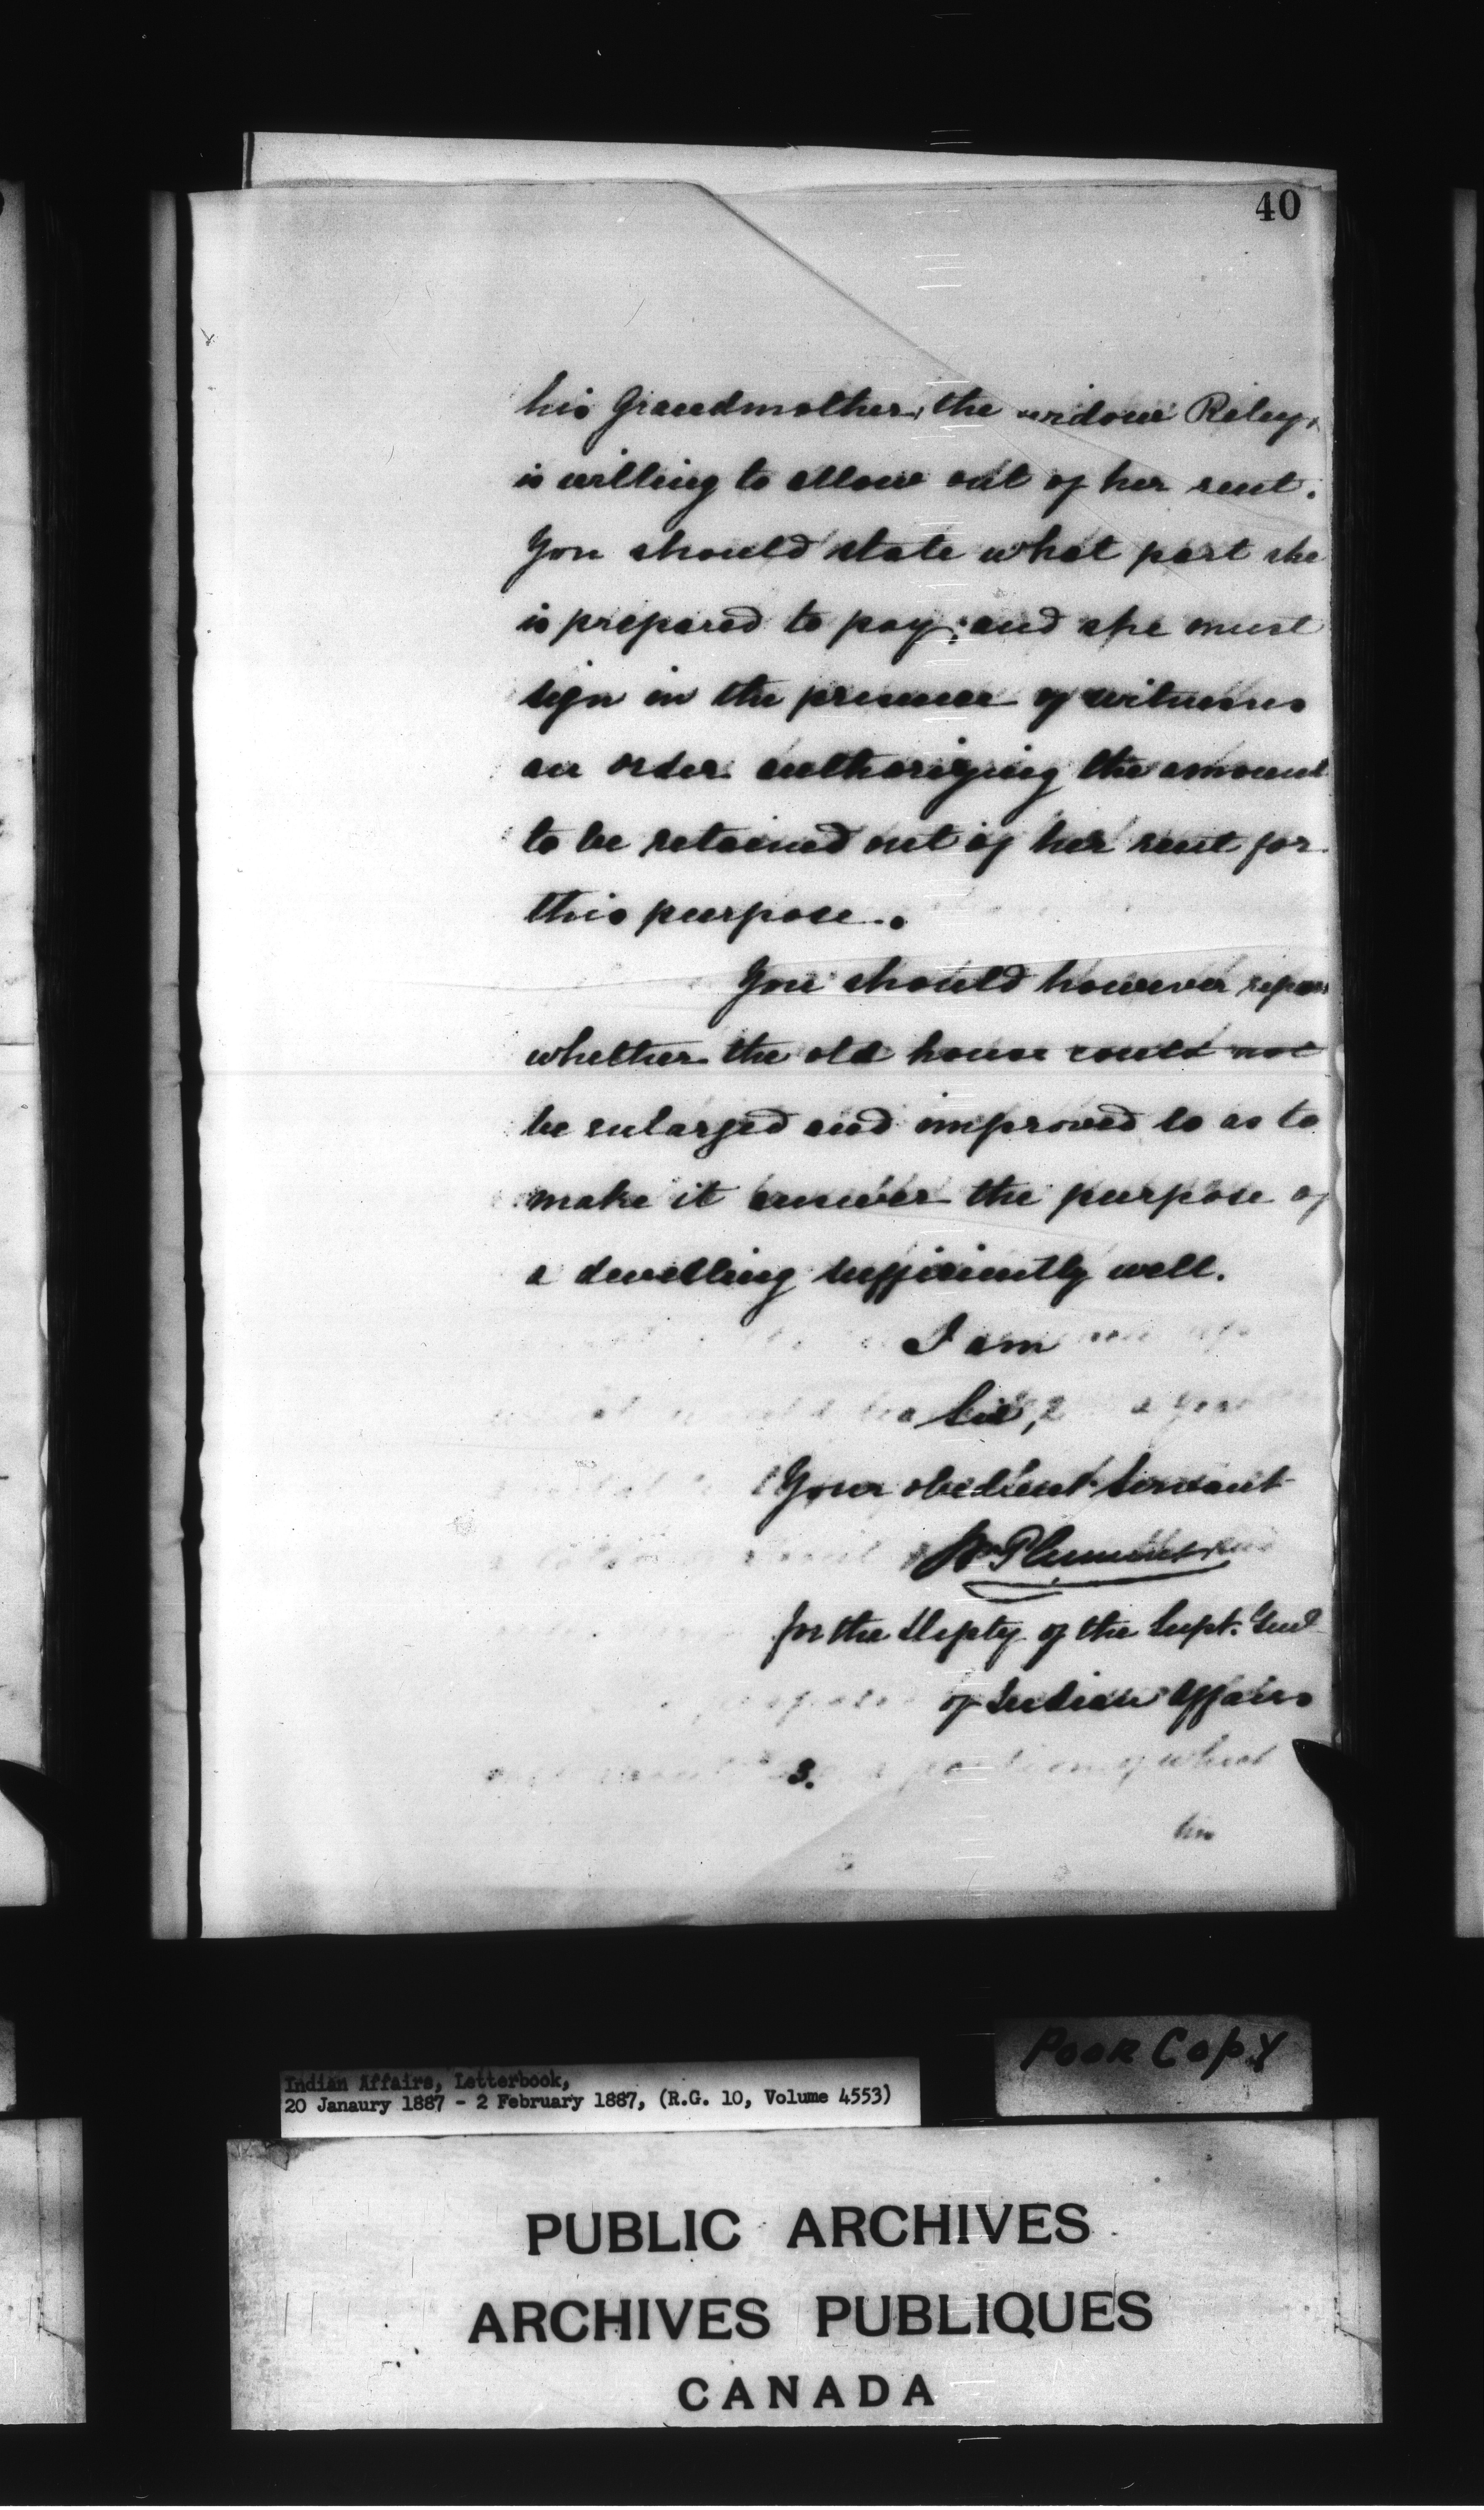 40
his Grandmother, the widow Riley,
is willing to allow out of her rent.
You should state what part she
is prepared to pay; and she must
sign in the presence of witnesses
an order authorizing the amount
to be retained out of her rent for
this purpose.
You should however report
whether the old house could not
be enlarged and improved so as to
make it answer the purpose of
a dwelling sufficiently well.
I am
Sir,
Your obedient Servant
Plummer
for the Depty of the Supt. Genl
of Indian Affairs
3.
his
POOR COPY
Indian Affairs, Letterbook,
20 Janaury 1887 - 2 February 1887, (R.G. 10, Volume 4553)
PUBLIC ARCHIVES
ARCHIVES PUBLIQUES
CANADA